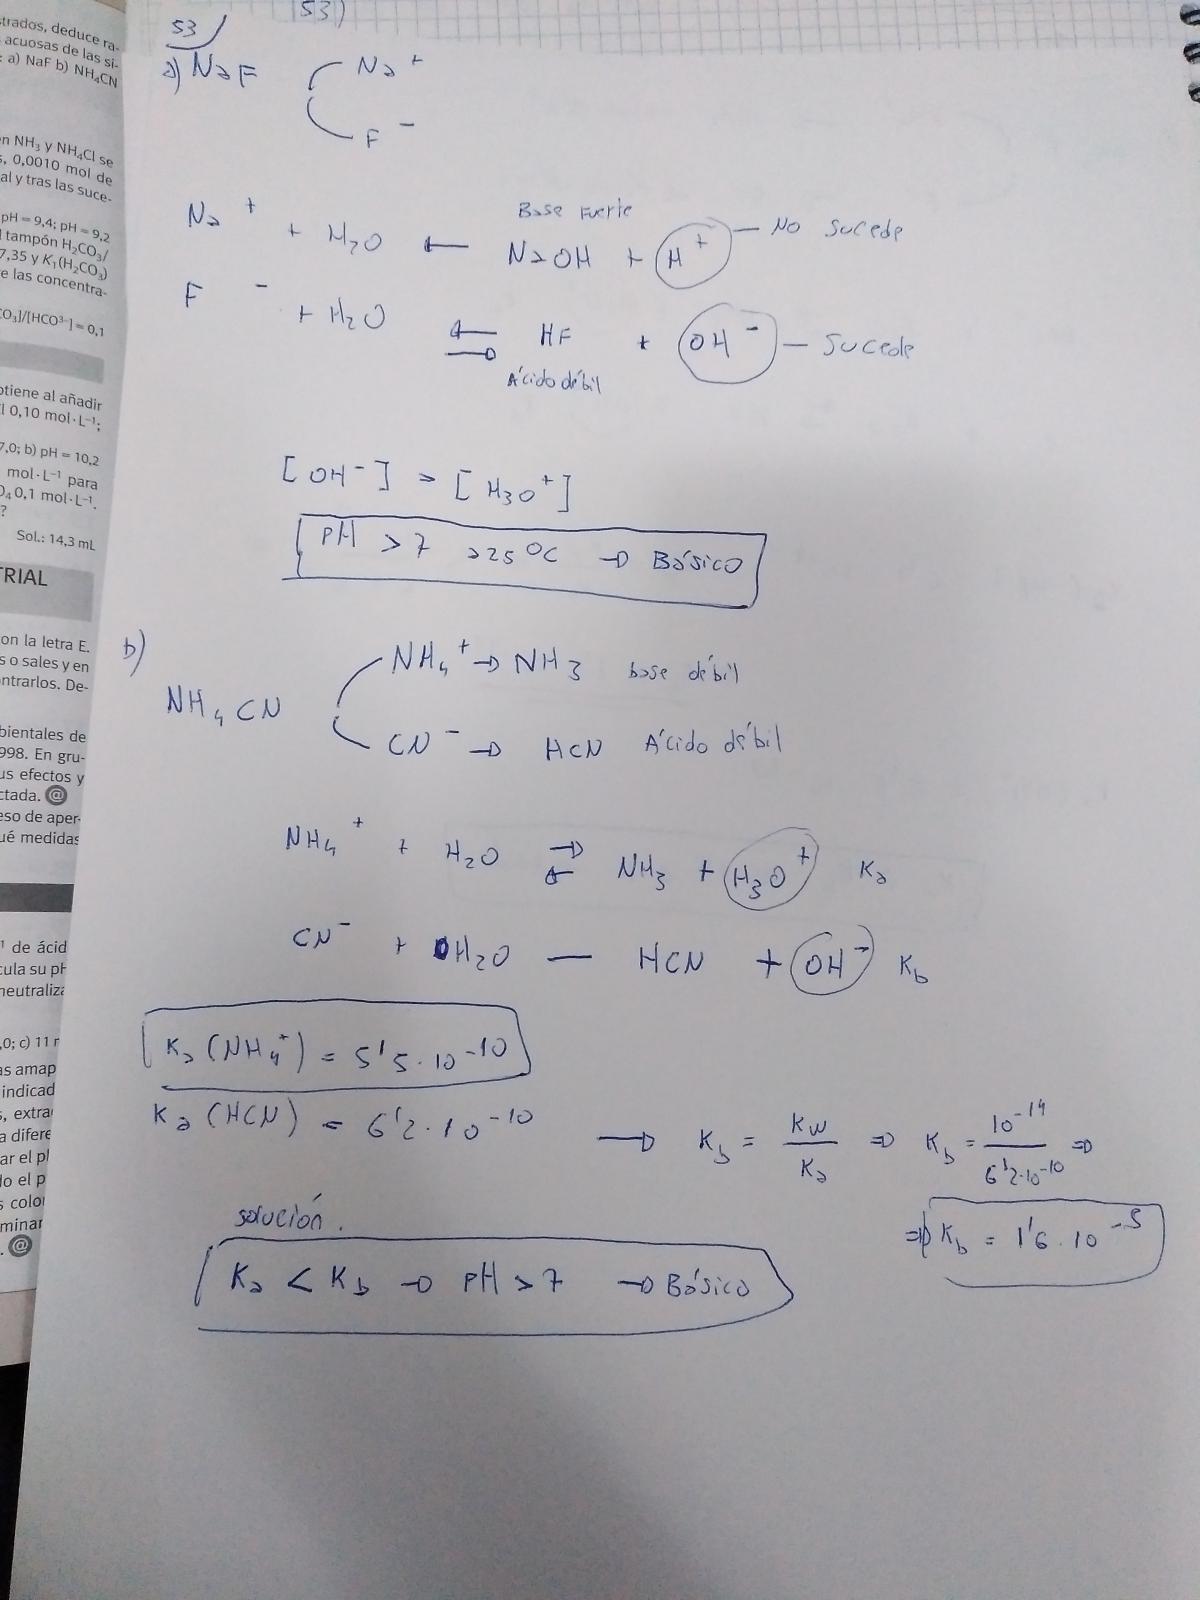 strados, deduce ra-
acuosas de las si-
: a) NaF b) NH₄CN
en NH₃ y NH₄Cl se
s, 0,0010 mol de
al y tras las suce-
pH = 9,4; pH = 9,2
l tampón H₂CO₃/
7,35 y K₁(H₂CO₃)
re las concentra-
CO₃]/[HCO³⁻] = 0,1
otiene al añadir
l 0,10 mol·L⁻¹;
7,0; b) pH = 10,2
mol·L⁻¹ para
O₄ 0,1 mol·L⁻¹.
?
Sol.: 14,3 mL
TRIAL
on la letra E.
s o sales y en
ntrarlos. De-
bientales de
998. En gru-
us efectos y
ctada. @
eso de aper-
ué medidas
¹ de ácid
cula su pH
neutraliza
,0; c) 11 r
as amap
indicad
s, extra
a difere
ar el pl
lo el p
s colo
minar
. @
53)
53
a) NaF Na⁺
F⁻
Na⁺ + H₂O ← NaOH + H⁺ — No sucede
Base Fuerte
F⁻ + H₂O ⇄ HF + OH⁻ — Sucede
Ácido débil
[OH⁻] > [H₃O⁺]
pH > 7 a 25ºC → Básico
b)
NH₄CN
NH₄⁺ → NH₃ base débil
CN⁻ → HCN Ácido débil
NH₄⁺ + H₂O ⇄ NH₃ + H₃O⁺ Ka
CN⁻ + H₂O — HCN + OH⁻ Kb
Ka (NH₄⁺) = 5'5·10⁻¹⁰
Ka (HCN) = 6'2·10⁻¹⁰ → Kb = Kw/Ka ⇒ Kb = 10⁻¹⁴/6'2·10⁻¹⁰ ⇒
⇒ Kb = 1'6·10⁻⁵
solución.
Ka < Kb → pH > 7 → Básico